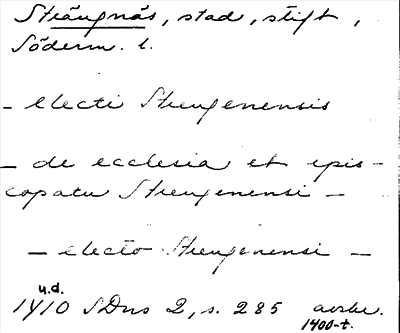 Strängnäs, stad, stift,
Söderm. l.
– electi Strengenensis
– de ecclesia et epis-
copatu Strengenensi –
– electo Strengenensi –
u.d.
1410 SDns 2, s. 285 avskr.
1400-t.